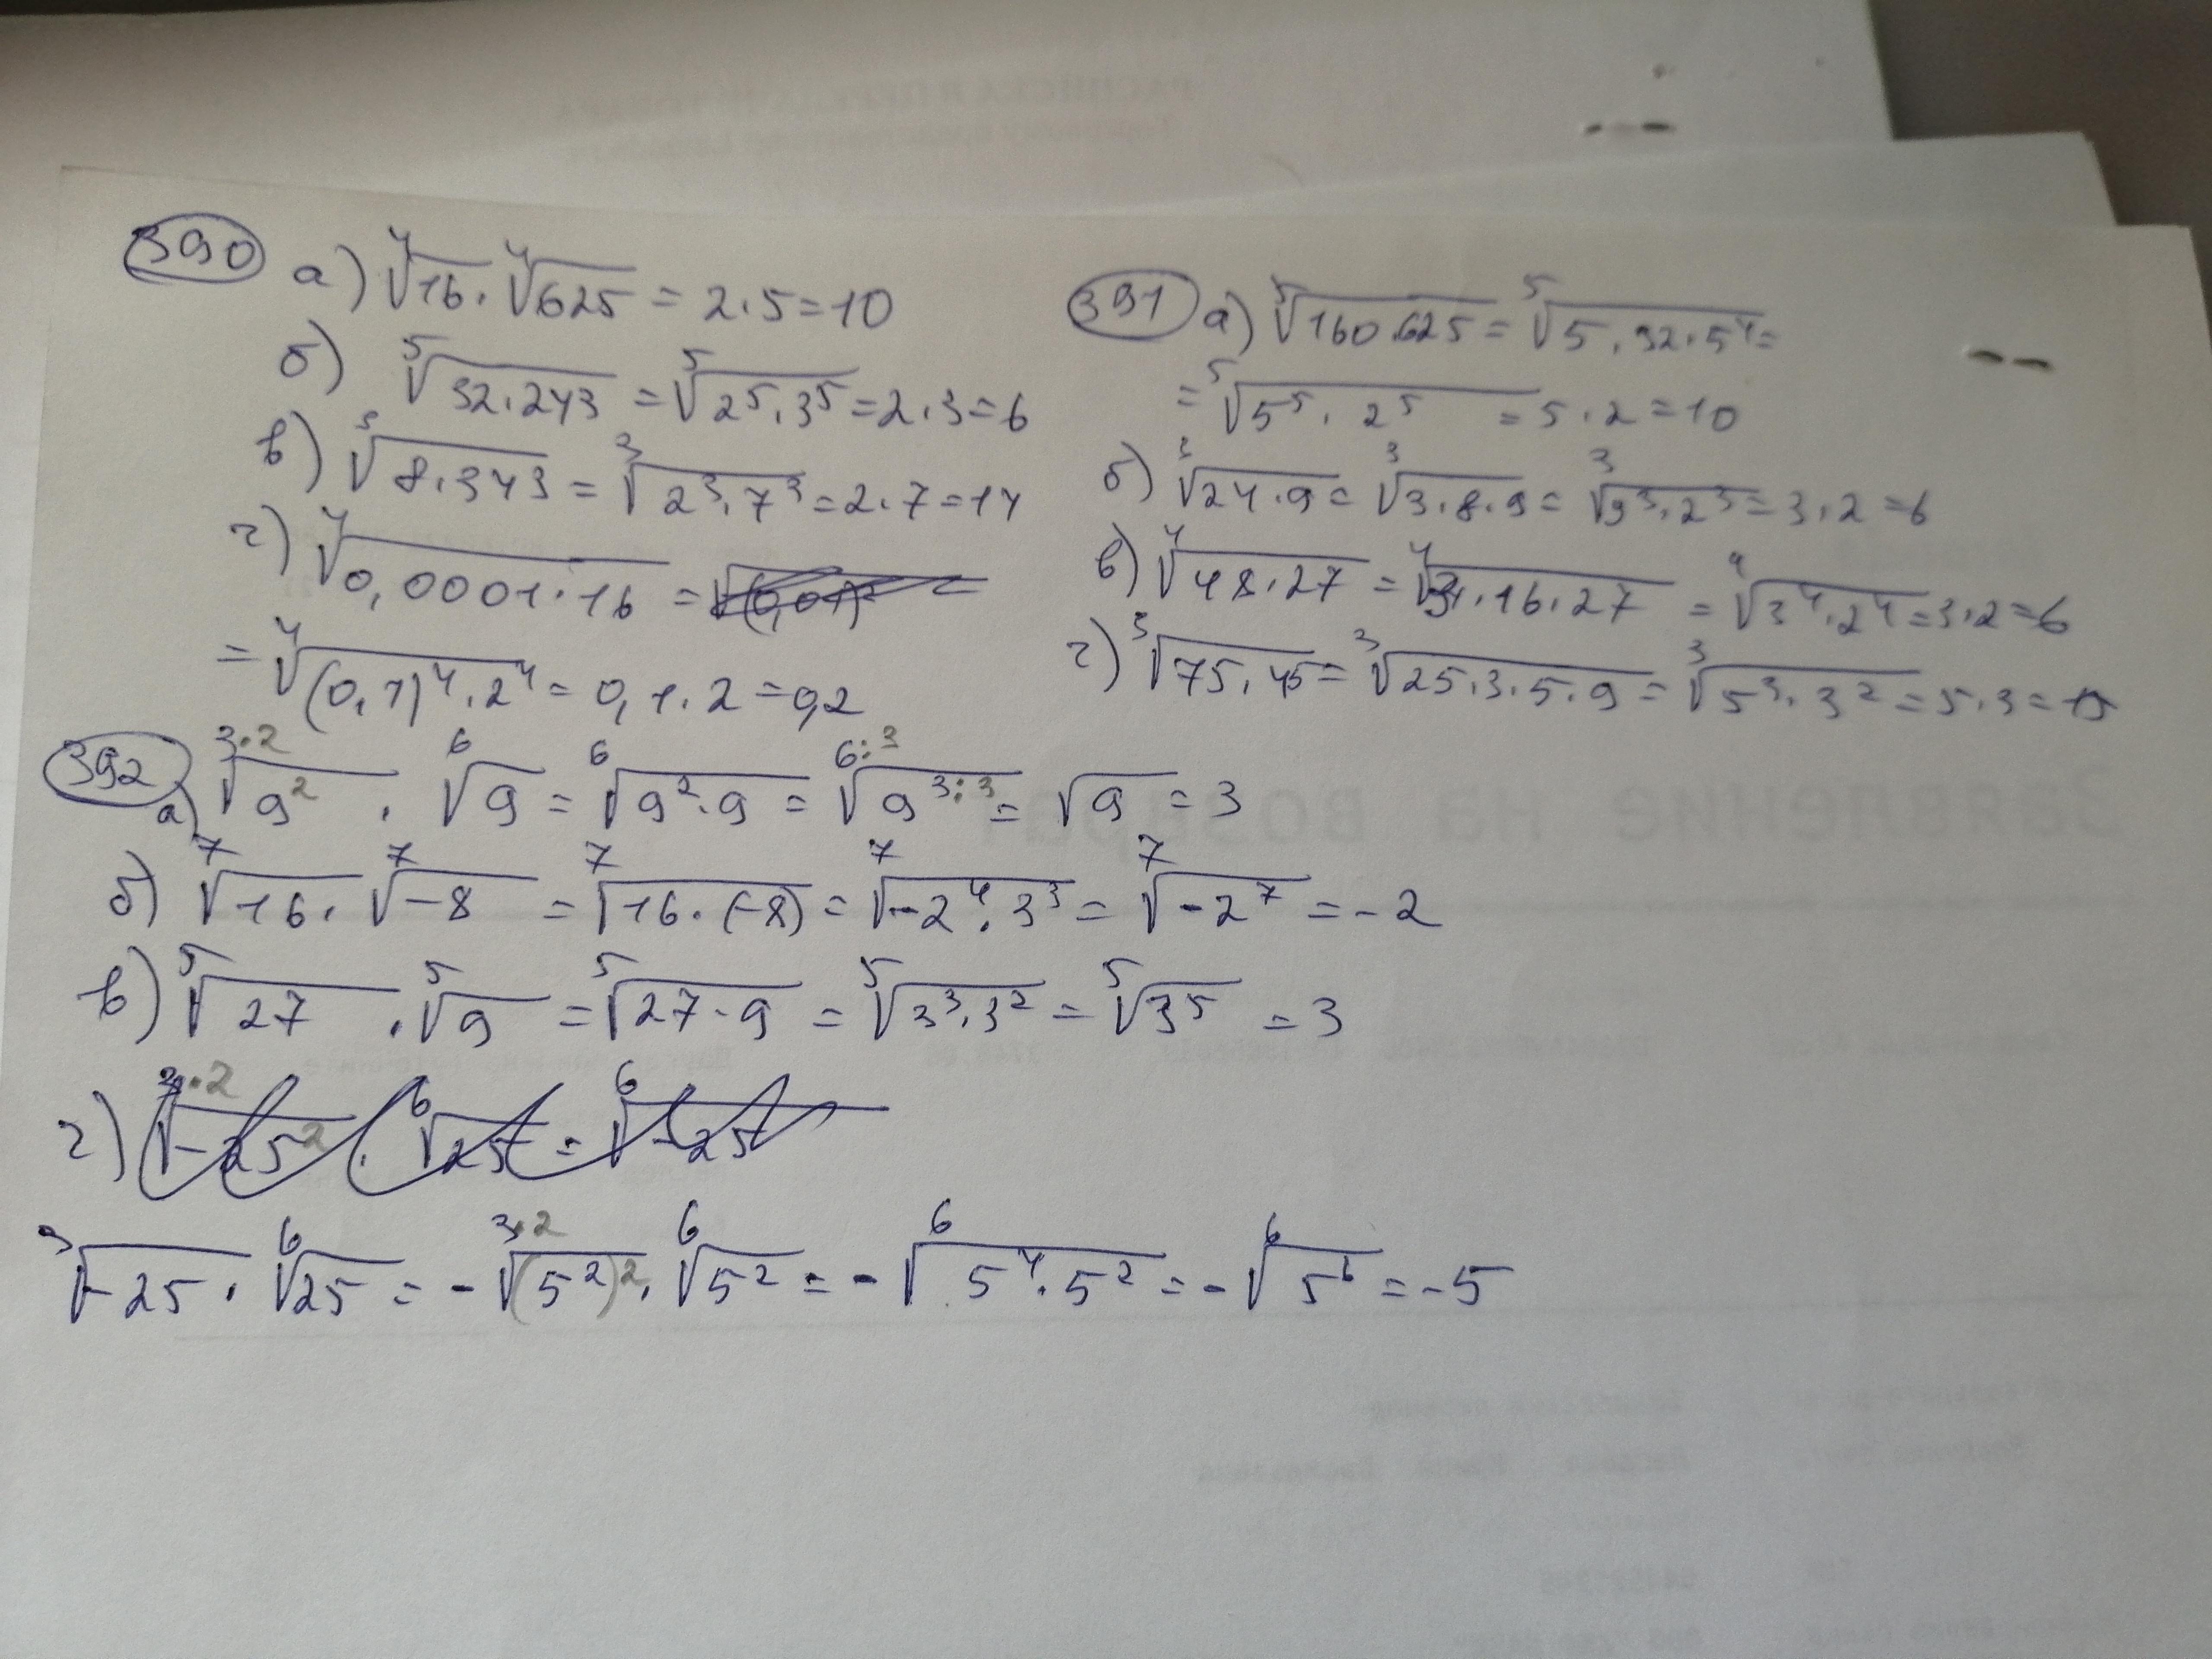 390 а) ⁴√16 · ⁴√625 = 2 · 5 = 10
б) ⁵√32 · 243 = ⁵√2⁵ · 3⁵ = 2 · 3 = 6
в) ³√8 · 343 = ³√2³ · 7³ = 2 · 7 = 14
г) ⁴√0,0001 · 16 =
= ⁴√(0,1)⁴ · 2⁴ = 0,1 · 2 = 0,2
391 а) ⁵√160 · 625 = ⁵√5 · 32 · 5⁴ =
= ⁵√5⁵ · 2⁵ = 5 · 2 = 10
б) ³√24 · 9 = ³√3 · 8 · 9 = ³√3³ · 2³ = 3 · 2 = 6
в) ⁴√48 · 27 = ⁴√3 · 16 · 27 = ⁴√3⁴ · 2⁴ = 3 · 2 = 6
г) ³√75 · 45 = ³√25 · 3 · 5 · 9 = ³√5³ · 3² = 5 · 3 = 15
392 а) ³·²√9² · ⁶√9 = ⁶√9² · 9 = ⁶:³√9³:³ = √9 = 3
б) ⁷√16 · ⁷√-8 = ⁷√16 · (-8) = ⁷√-2⁴ · 3³ = ⁷√-2⁷ = -2
в) ⁵√27 · ⁵√9 = ⁵√27 · 9 = ⁵√3³ · 3² = ⁵√3⁵ = 3
г) ³·²√-25² · ⁶√25 = ⁶√-25
³√-25 · ⁶√25 = -³·²√(5²)² · ⁶√5² = -⁶√5⁴ · 5² = -⁶√5⁶ = -5
Заявление на возврат